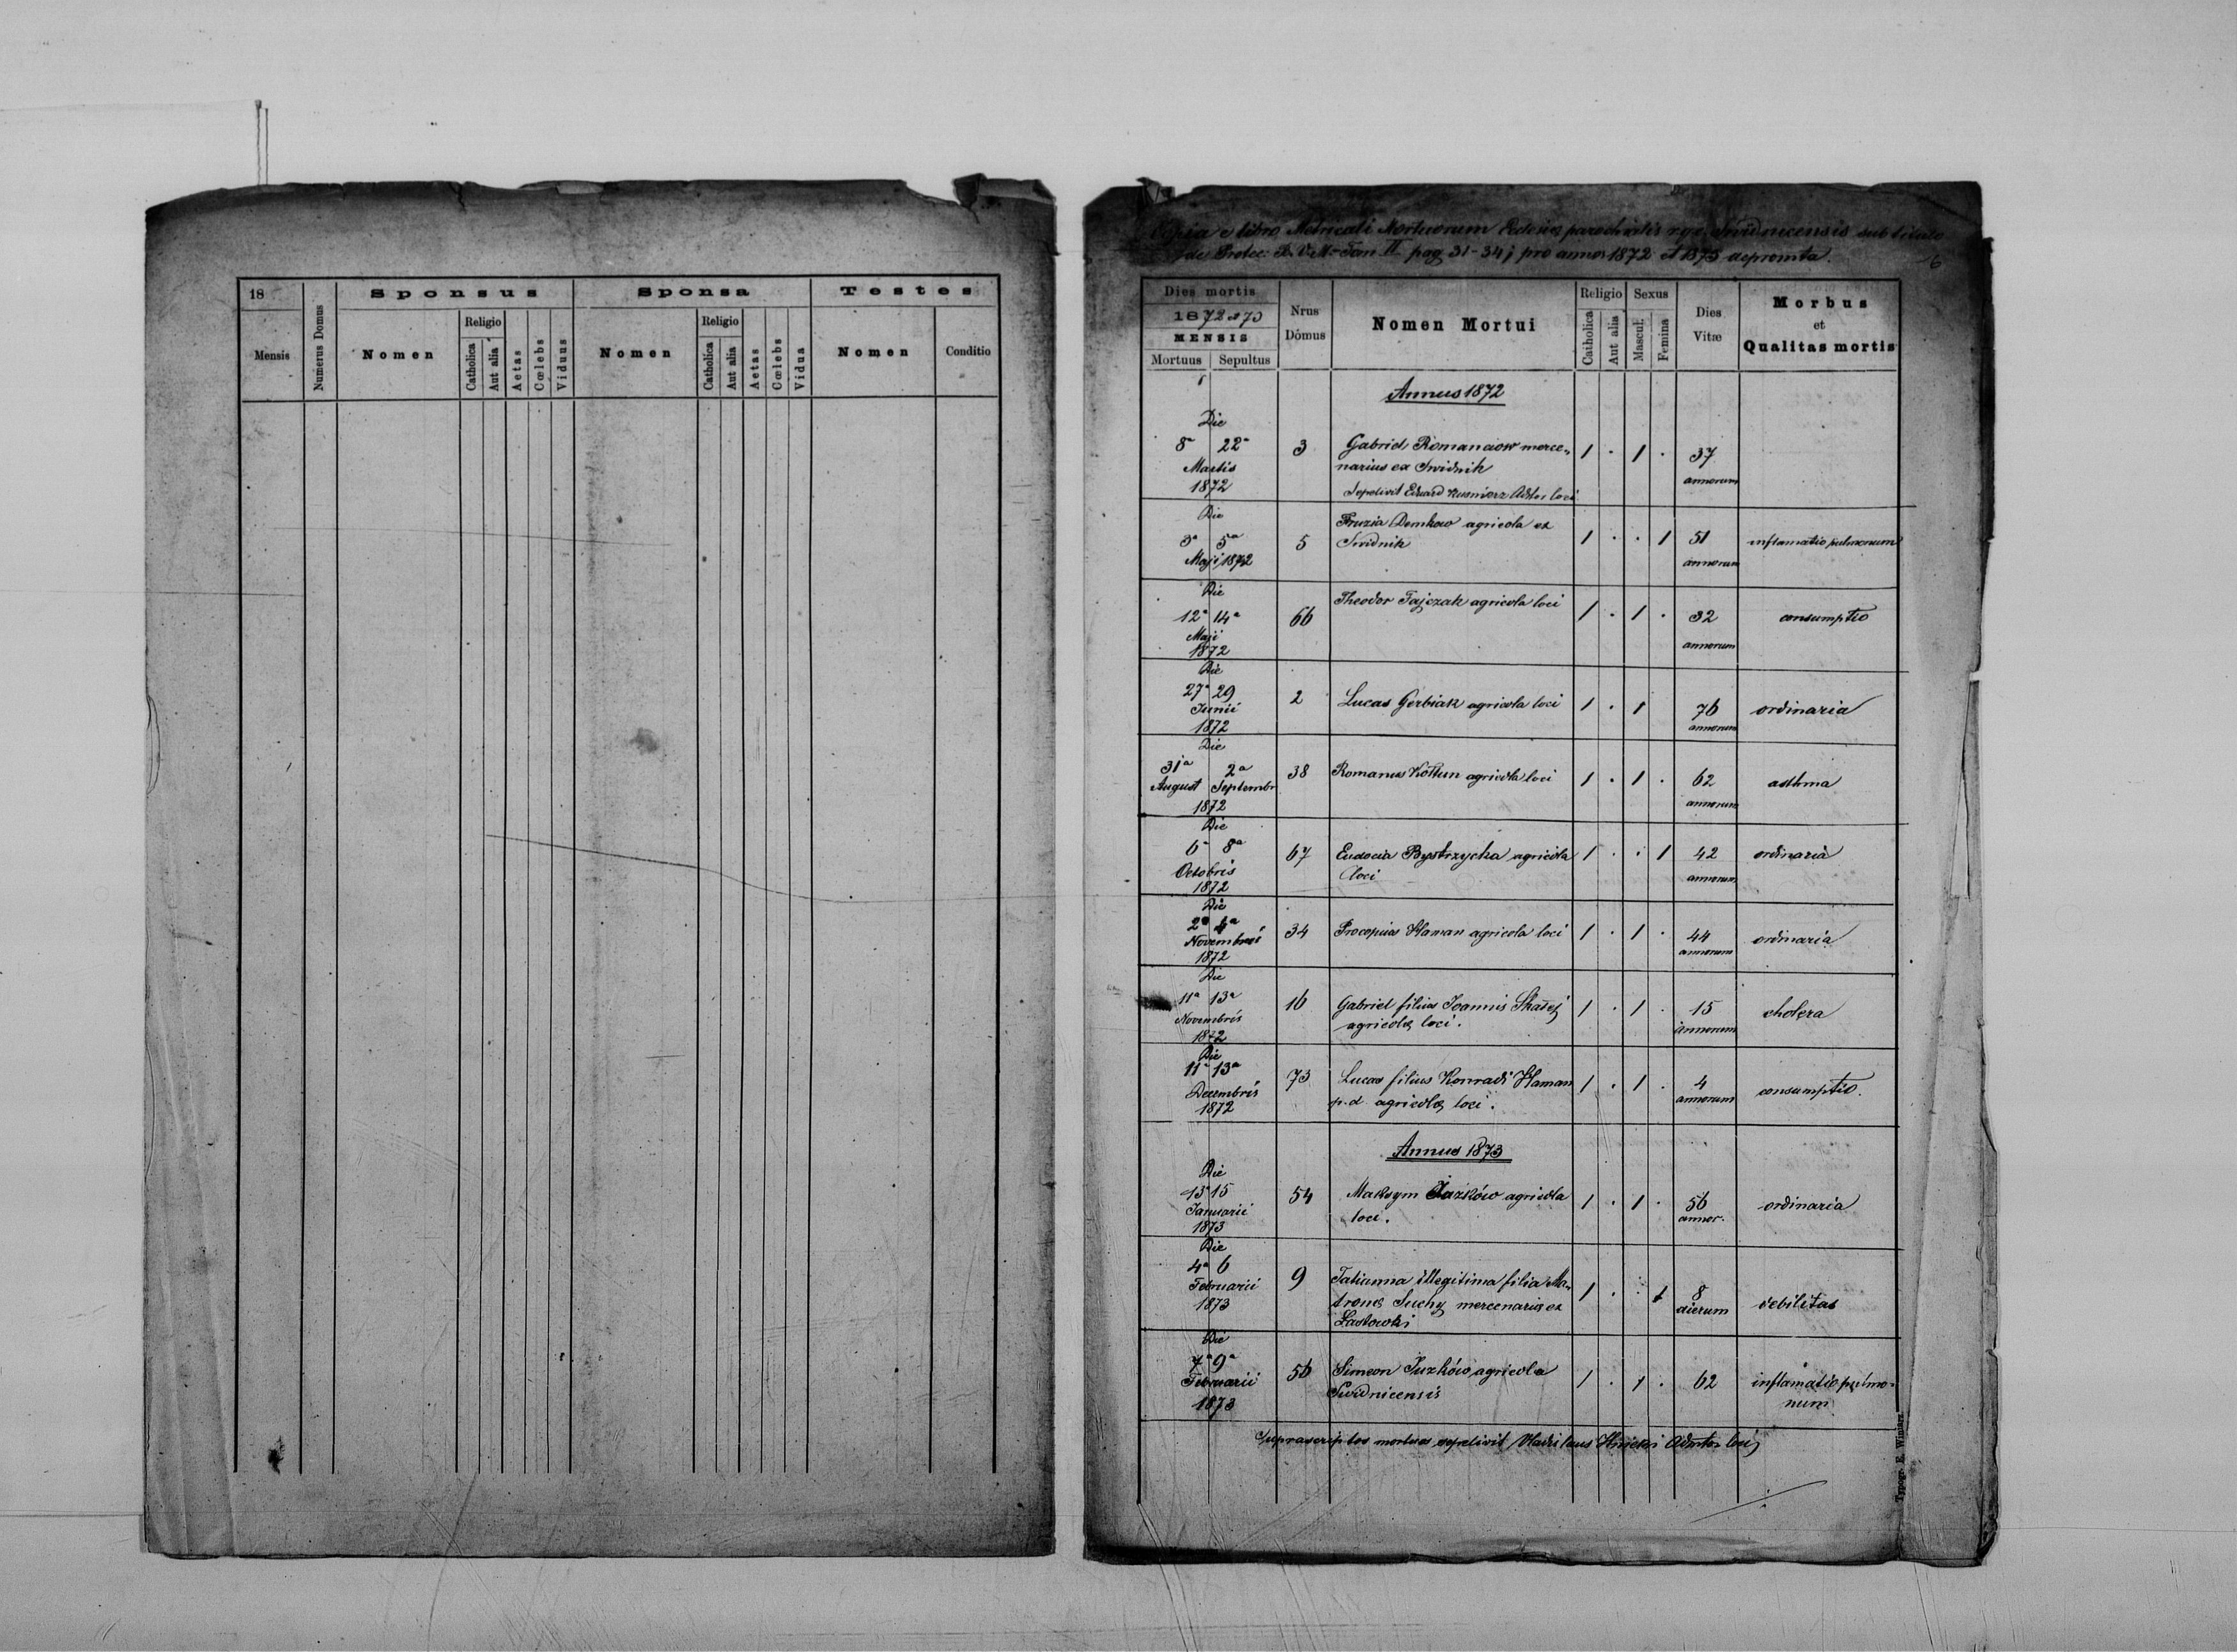 18
Mensis
Numerus Domus
Sponsus
Nomen
Religio
Catholica
Aut alia
Aetas
Cœlebs
Viduus
Sponsa
Nomen
Religio
Catholica
Aut alia
Aetas
Cœlebs
Vidua
Testes
Nomen
Conditio
Copia e libro Metricali Mortuorum Ecclesiæ parochialis r.g.c. Swidnicensis sub titulo
de Protec: B.V.M. Tom II pag 31-34 pro annos 1872 et 1873 depromta.
6
Dies mortis
1872 et 73
MENSIS
Mortuus Sepultus
Nrus
Domus
Nomen Mortui
Religio
Catholica
Aut alia
Sexus
Mascul.
Femina
Dies
Vitæ
Morbus
et
Qualitas mortis
Annus 1872
Die
8ª 22ª 3 Gabriel Romanciow merce„ 1 . 1 . 37
Martis narius ex Swidnik annorum
1872 Sepelivit Eduard Kusnierz Adtor loci
Die
3ª 5ª 5 Fruzia Demkow agricola ex 1 . . 1 51 inflamatio pulmonum
Maji 1872 Swidnik annorum
Die
12ª 14ª 66 Theodor Fajczak agricola loci 1 . 1 . 32 consumptio
Maji annorum
1872
Die
27ª 29 2 Lucas Gerbiak agricola loci 1 . 1 76 ordinaria
Junii annorum
1872
Die
31ª 2ª 38 Romanus Kołtun agricola loci 1 . 1 . 62 asthma
August Septembr annorum
1872
Die
6ª 8ª 67 Eudocia Bystrzycka agricola 1 . . 1 42 ordinaria
Octobris loci annorum
1872
Die
2ª 4ª 34 Procopius Haman agricola loci 1 . 1 . 44 ordinaria
Novembris annorum
1872
Die
11ª 13ª 16 Gabriel filius Joannis 1 . 1 . 15 cholera
Novembris agricolæ loci. annorum
1872
Die
11ª 13ª 73 Lucas filius Konradi Haman 1 . 1 . 4 consumptio.
Decembris p.d. agricolæ loci. annorum
1872
Annus 1873
Die
13ª 15 54 Maksym agricola 1 . 1 . 56 ordinaria
Januarii loci. annor.
1873
Die
4ª 6 9 Tatianna illegitima filia Ma„ 1 . . 1 8 debilitas
Februarii tronæ Suchy mercenariæ ex dierum
1873
Die
7ª 9ª 56 Simeon Juzków agricola 1 . 1 . 62 inflamatio pulmo-
Februarii Swidnicensis num
1873
Suprascriptos mortuos sepelivit Vladislaus Adtor loci
Typogr. E. Winiarz.